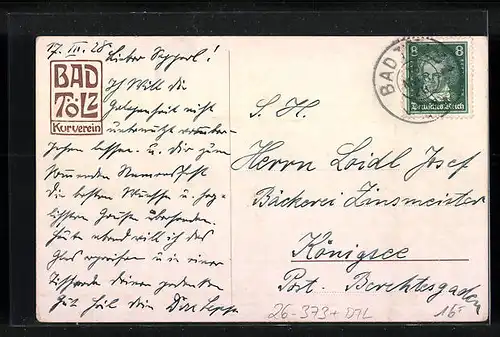 17. III. 28.
Lieber Sepperl!
BAD
TÖLZ
Kurverein
Ich will die
Gelegenheit nicht
unbenutzt vorüber-
gehen lassen. u. dir zum
kommenden Namensfest
die besten Wünsche u. herz-
lichsten Grüße übersenden.
Heute abend will ich das
Glas ergreifen u. in einer
deiner gedenken
Gut Heil dein
BAD
8 8
Deutsches Reich
S. H.
Herrn Loidl Josef
Bäckerei Zinsmeister
Königsee
Post. Berchtesgaden
26-373+DTL
16-